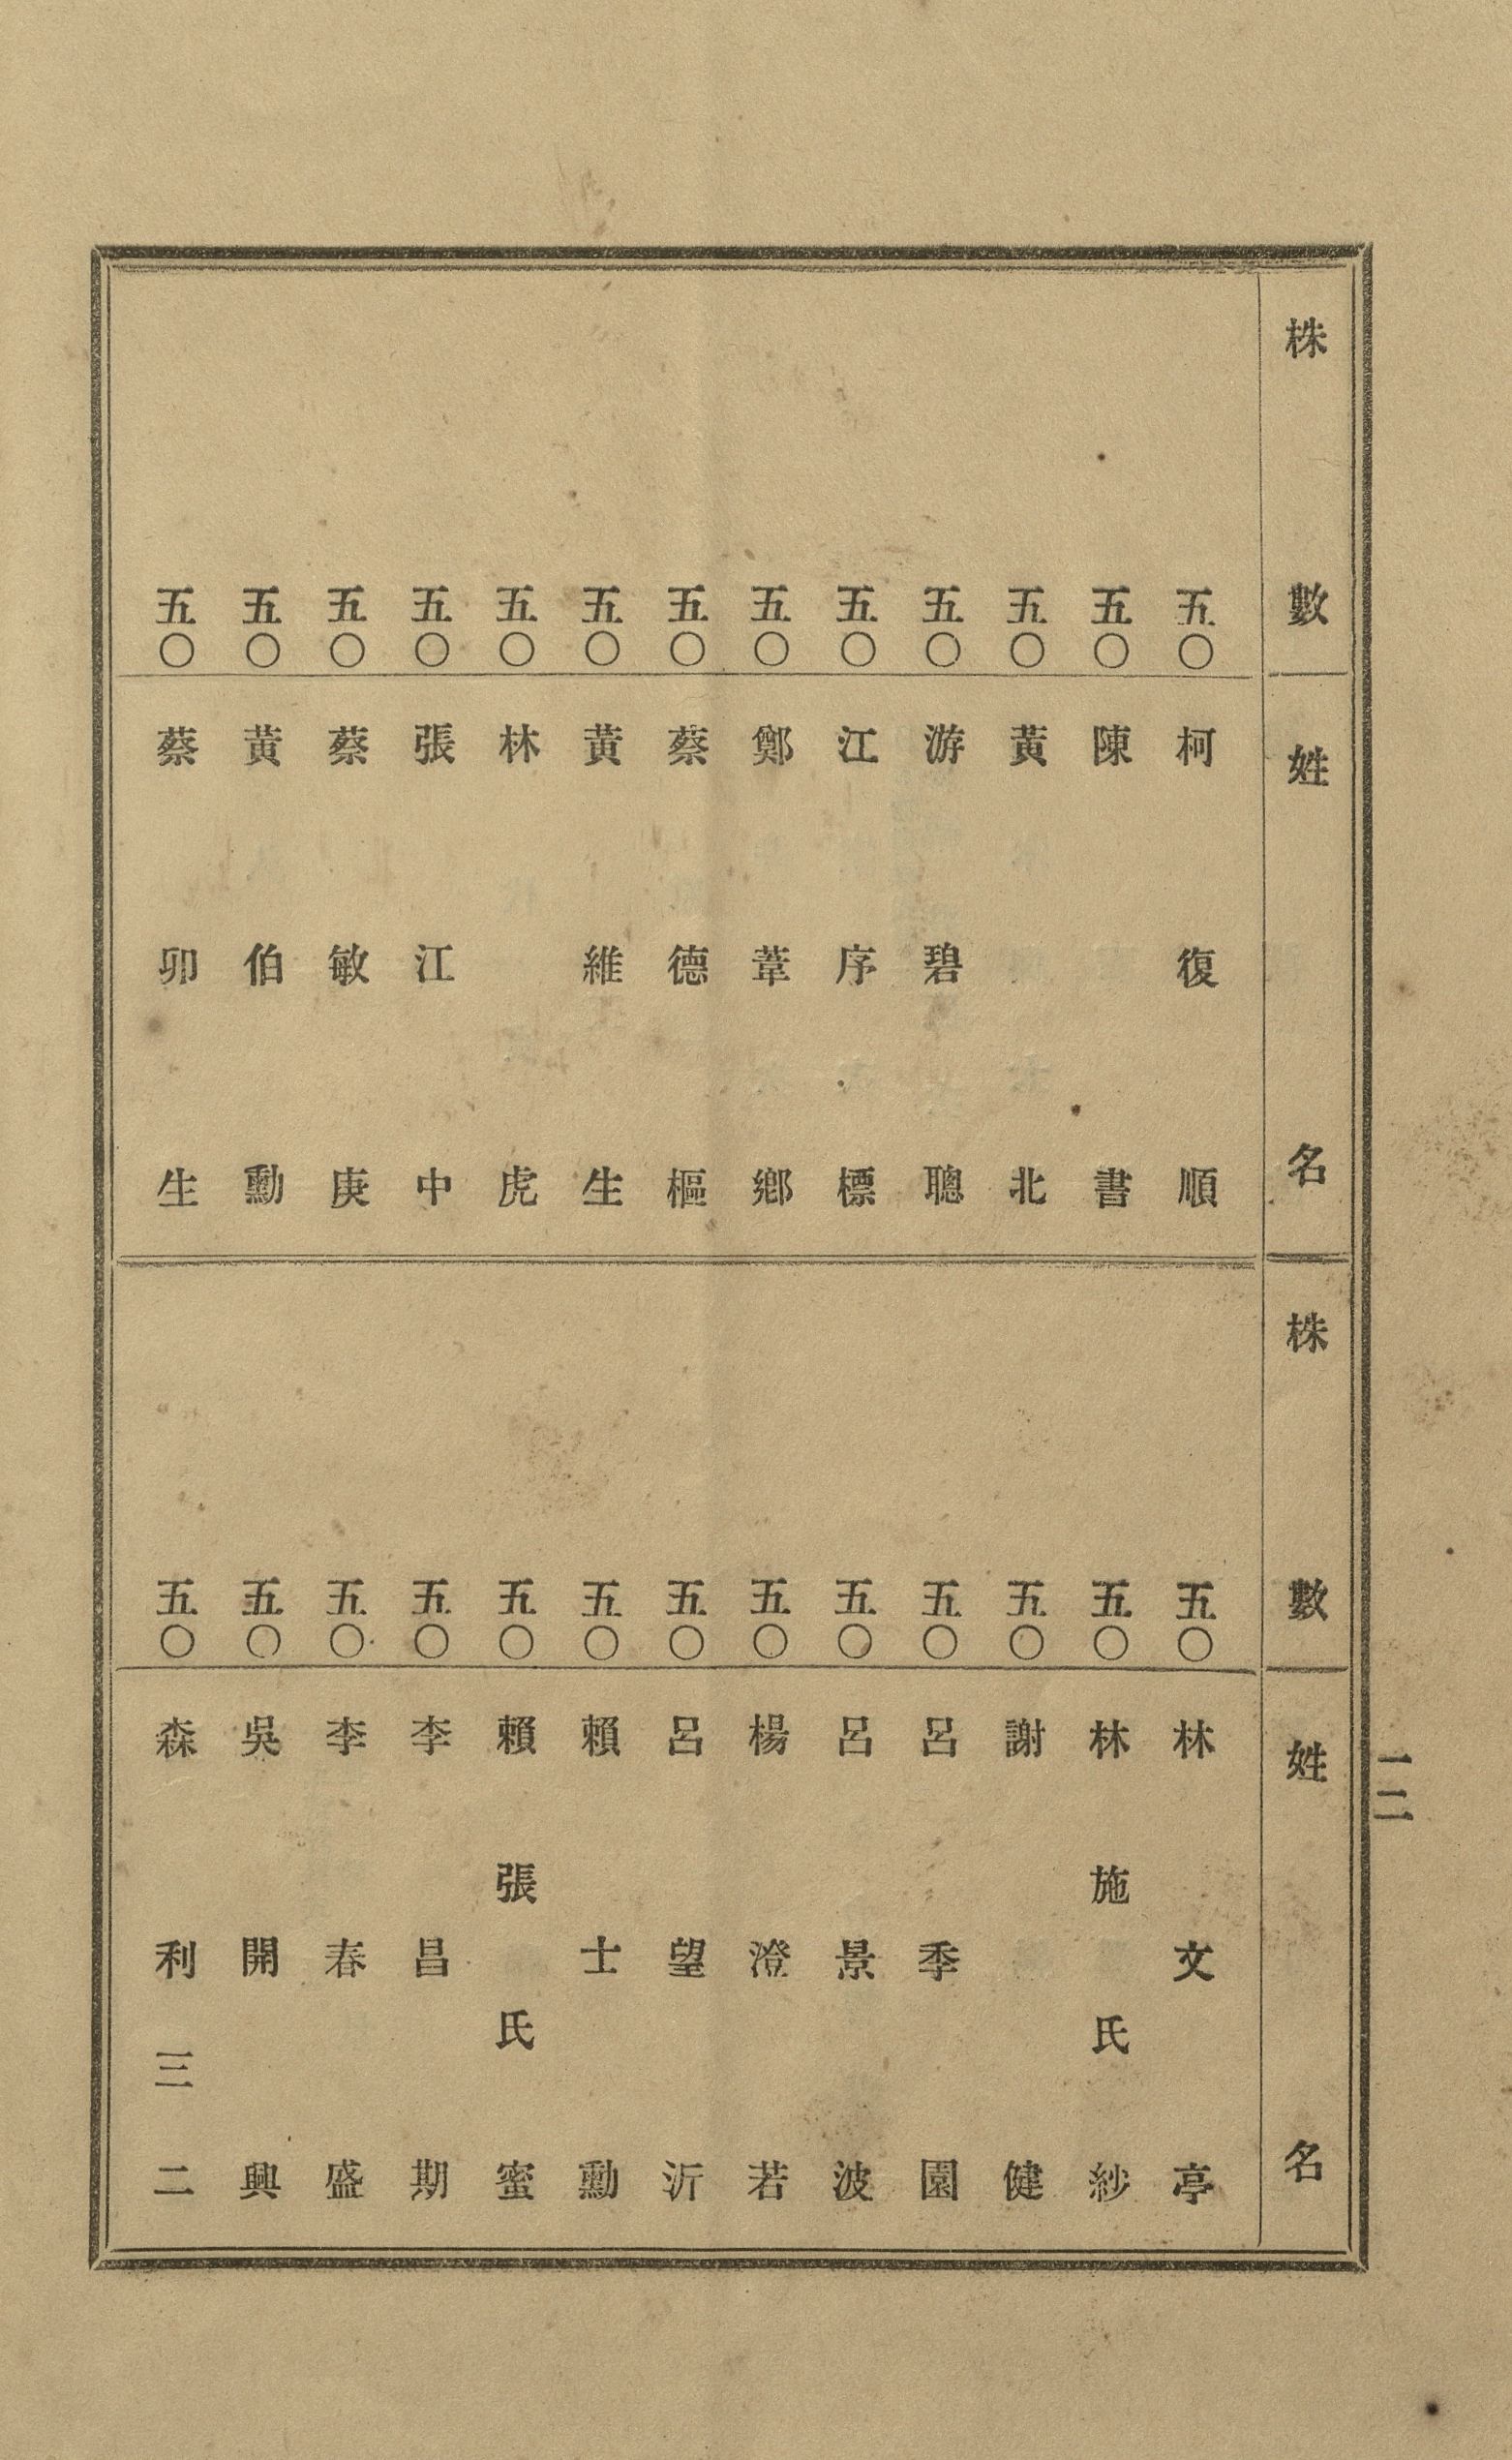 株數 姓名
五〇 柯復順
五〇 陳書
五〇 黃北
五〇 游碧聰
五〇 江序標
五〇 鄭葦鄉
五〇 蔡德樞
五〇 黃維生
五〇 林虎
五〇 張江中
五〇 蔡敏庚
五〇 黃伯勳
五〇 蔡卯生
株數 姓名
五〇 林文亭
五〇 林施氏紗
五〇 謝健
五〇 呂季園
五〇 呂景波
五〇 楊澄若
五〇 呂望沂
五〇 賴士勳
五〇 賴張氏蜜
五〇 李昌期
五〇 李春盛
五〇 吳開興
五〇 森利三二
一二